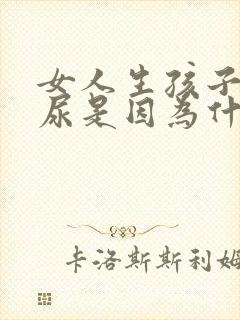 女人生孩子
尿是因為什
卡洛斯斯利姆